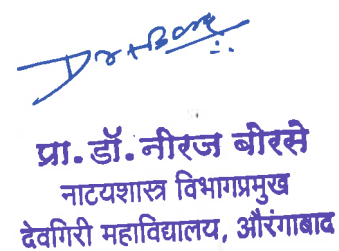 प्रा. डॉ. नीरज बोरसे
नाटयशास्त्र विभागप्रमुख
देवगिरी महाविद्यालय, औरंगाबाद